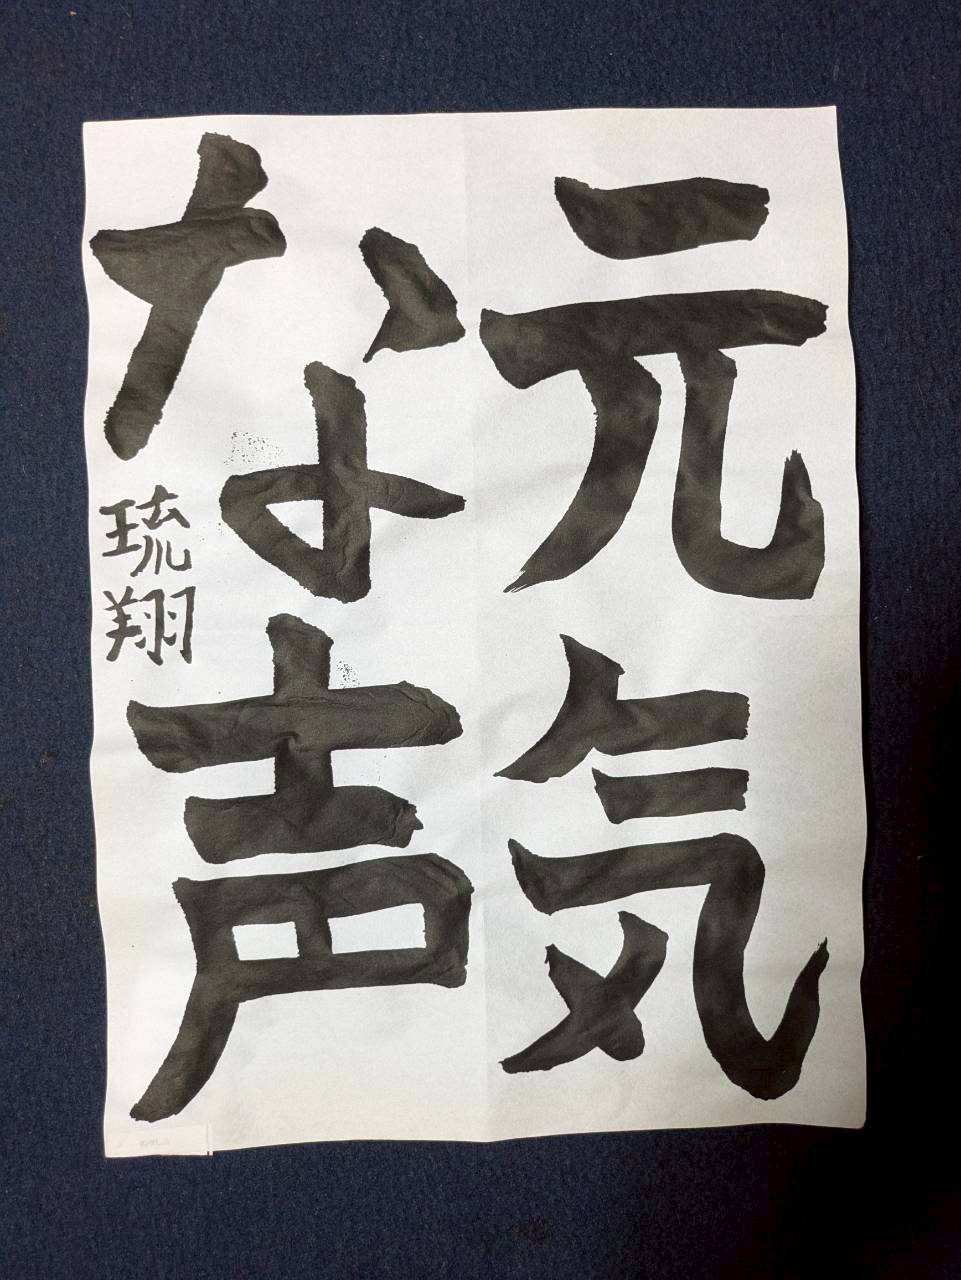 元気
な声
琉翔